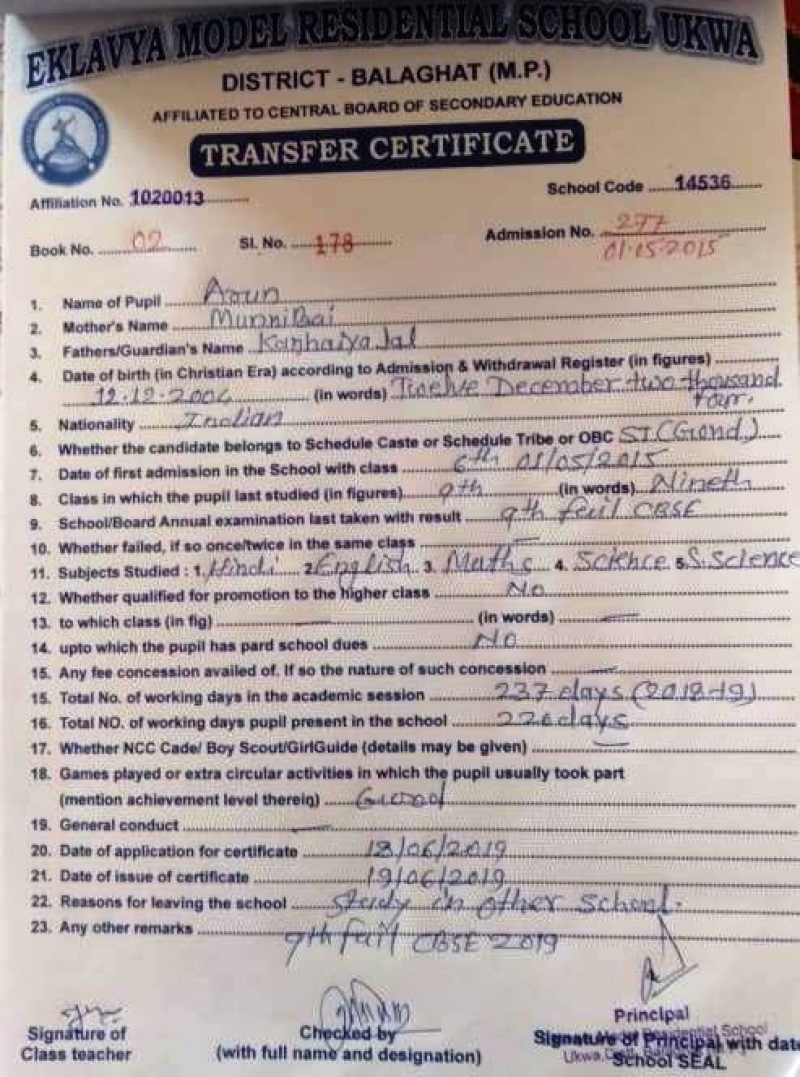 EKLAVYA MODEL RESIDENTIAL SCHOOL UKWA
DISTRICT - BALAGHAT (M.P.)
AFFILIATED TO CENTRAL BOARD OF SECONDARY EDUCATION
TRANSFER CERTIFICATE
Affiliation No. 1020013 School Code 14536
Book No. 02 Sl. No. 178 Admission No. 277
01.05.2015
1. Name of Pupil Arun
2. Mother's Name Munni Bai
3. Fathers/Guardian's Name Kanhaiya lal
4. Date of birth (in Christian Era) according to Admission & Withdrawal Register (in figures)
12.12.2004 (in words) Twelve December two thousand
four.
5. Nationality Indian
6. Whether the candidate belongs to Schedule Caste or Schedule Tribe or OBC ST (Gond.)
7. Date of first admission in the School with class 6th 01/05/2015
8. Class in which the pupil last studied (in figures) 9th (in words) Nineth
9. School/Board Annual examination last taken with result 9th feil CBSE
10. Whether failed, if so once/twice in the same class
11. Subjects Studied : 1. Hindi 2. English 3. Maths 4. Science 5. S. Science
12. Whether qualified for promotion to the higher class No
13. to which class (in fig) (in words)
14. upto which the pupil has pard school dues No
15. Any fee concession availed of. If so the nature of such concession
15. Total No. of working days in the academic session 237 days (2018-19)
16. Total NO. of working days pupil present in the school 226 days
17. Whether NCC Cade/ Boy Scout/GirlGuide (details may be given)
18. Games played or extra circular activities in which the pupil usually took part
(mention achievement level therein) Good
19. General conduct
20. Date of application for certificate 18/06/2019
21. Date of issue of certificate 19/06/2019
22. Reasons for leaving the school Study in other school.
23. Any other remarks 9th feil CBSE 2019
Signature of
Class teacher
Checked by
(with full name and designation)
Principal
Signature of Principal with date
School SEAL